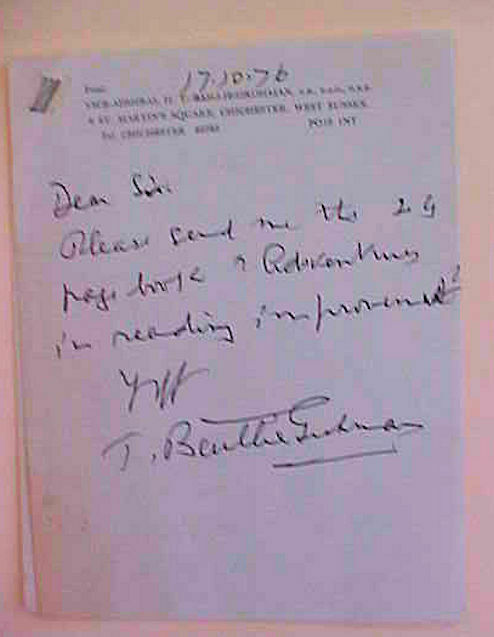 From:
17.10.76
VICE-ADMIRAL H. T. BAILLIE-GROHMAN, C.B., D.S.O., O.B.E.
ST. MARTIN'S SQUARE, CHICHESTER, WEST SUSSEX
Tel. CHICHESTER
PO19 1NT
Dear Sir
Please send me the 24
page book & Adventures
in reading improvement
T. Baillie Grohman